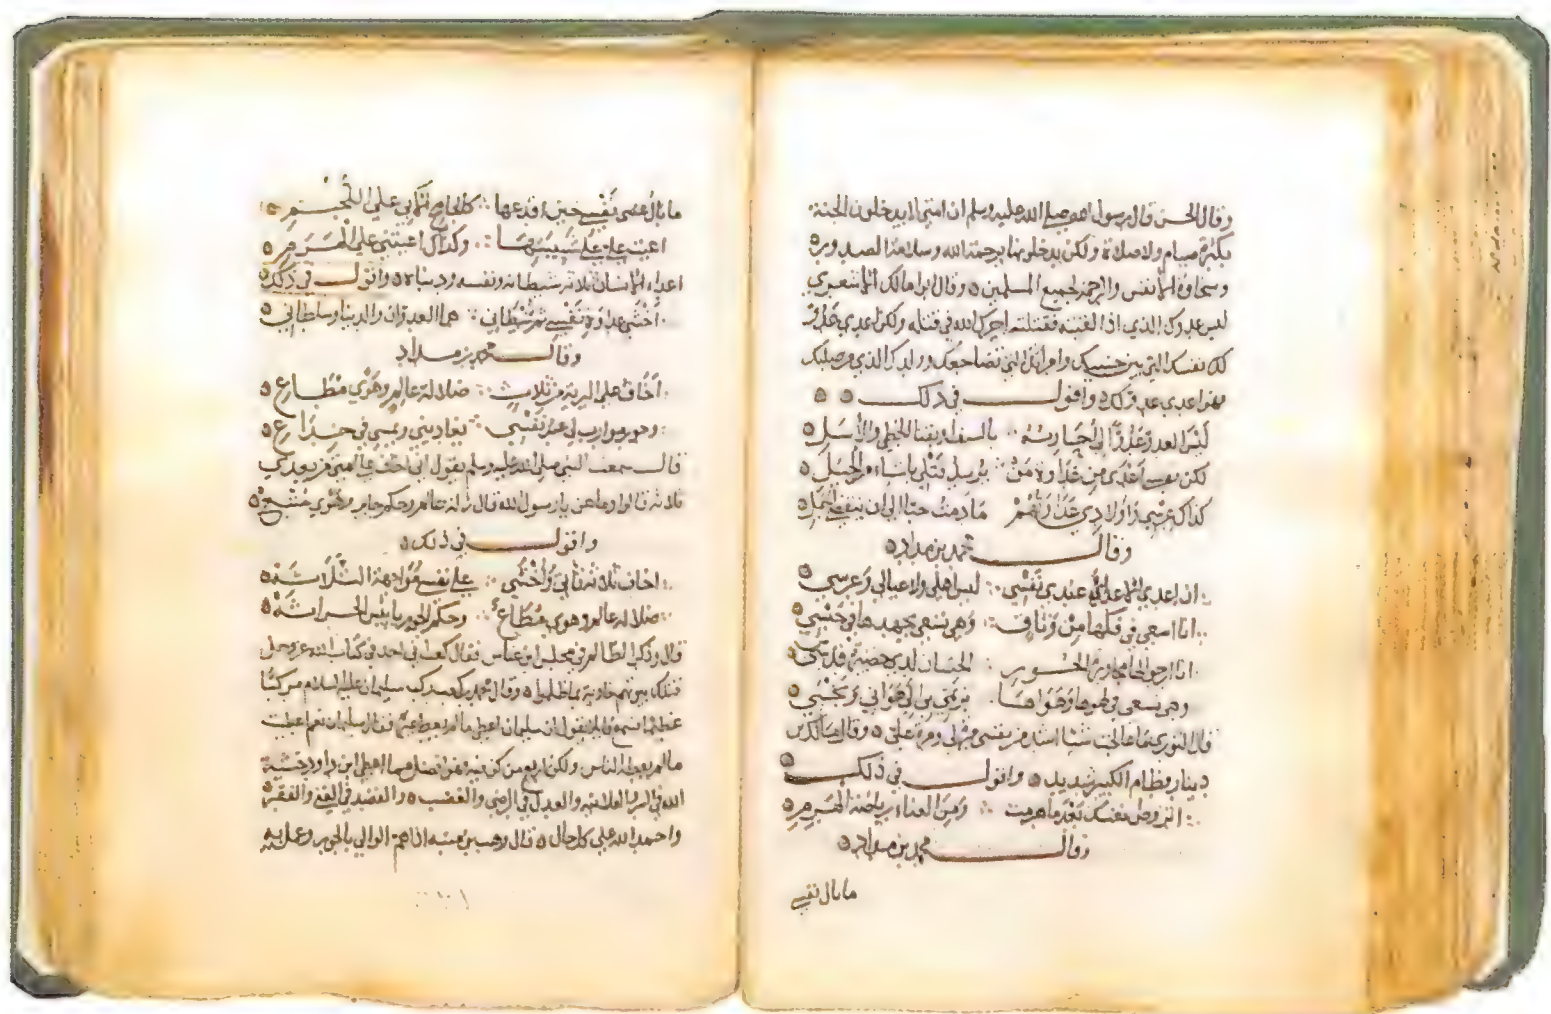 وقال الحسن قال رسول الله صلي الله عليه وسلم ان امتي لا يدخلون الجنة
بكثرة صيام ولا صلاة ولكن يدخلونها برحمة الله وسلامة الصدور
وسخاوة الأنفس والرحمة لجميع المسلمين وقال ابو مالك الاشعري
ليس عدوك الذي اذا لقيته فقتلته اجرك الله في قتله ولكن اعدي عدو
لك نفسك التي بين جنبيك وامراتك التي تضاجعك وولدك الذي من صلبك
فهو اعدي عدو لك واقول في ذلك
ليس العدو عدوا لي احاربه بالسيف والقنا الخطي والأسل
لكن نفسي اعدي من عداوة من يريد قتلي باساء
كذاك عرسي واولادي عداوتهم ما دمت حيا الي ان ينقضي اجلي
وقال محمد بن مداد
ان اعدي الاعداء عندي نفسي ليس اهلي ولا عيالي وعرسي
انا اسعي في فكها من وثاق وهي تسعي بجهدها في حبسي
انا ارجو لها مجاورة الحور الحسان لدي
وهي تسعي في لهوها وهواها
قال الثوري ما عالجت شيا اشد من نفسي مرة لي ومرة علي وقال مالك بن
دينار وفطام الكبير شديد واقول في ذلك
اتروض نفسك بعد ما هرمت ومن العناء رياضة الهرم
وقال محمد بن مداد
ما بال نفسي
ما بال نفسي حين اقدعها كالجامح علي اللجم
اعيت علي علي شبيبتها وكذاك اعيتني علي الهرم
اعداء الانسان ثلاثة شيطانه ونفسه ودنياه واقول في ذلك
اخشي عداوة نفسي ثم شيطاني هما العدوان والدنيا وسلطاني
وقال محمد بن مداد
اخاف علي البرية من ثلاث ضلالة عالم وهوي مطاع
وجور يغاديني ويمسي في
قال سمعت النبي صلي الله عليه وسلم يقول اني اخاف علي امتي من بعدي
ثلاثة قالوا وما هن يا رسول الله قال زلة عالم وحكم جاير وهوي متبع
واقول في ذلك
اخاف ثلاثة واخشي علي نفسي مواجهة الثلاثة
ضلالة عالم وهوي مطاع وحكم الجور يا بئس الحراثة
قال وذكر الظالم في مجلس ابن عباس فقال كعب اني اجد في كتاب الله عز وجل
فتلك بيوتهم خاوية بما ظلموا وقال محمد بن كعب ركب سليمان عليه السلام مركبا
عظيما فسمع قايلا يقول ان سليمان اعطي ما لم يعط فقال سليمان نعم اعطيت
ما لم يعطه الناس ولكن اربع من كن فيه فهو افضل مما اعطي ابن داود خشية
الله في السر والعلانيه والعدل في الرضي والغضب والقصد في الغني والفقر
واحمد الله علي كل حال قال وهب بن منبه اذا هم الوالي بالجور وعمل به